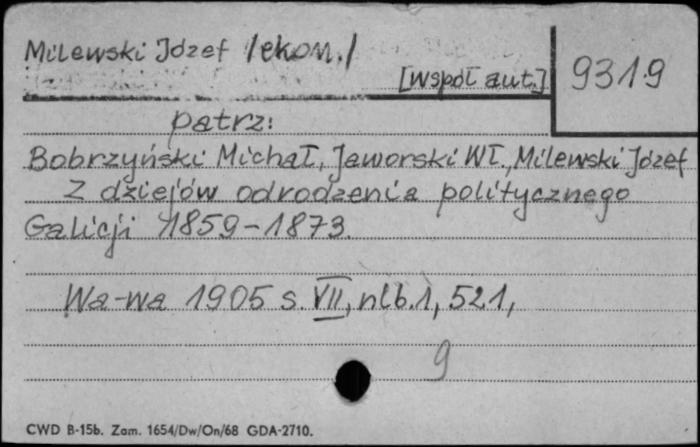 Milewski Józef /ekon./
[współ aut.]
9319
patrz:
Bobrzyński Michał, Jaworski Wł., Milewski Józef
Z dziejów odrodzenia politycznego
Galicji 1859-1873.
Wa-wa 1905 s. VII, nlb. 1, 521,
9
CWD B-15b. Zam. 1654/Dw/On/68 GDA-2710.